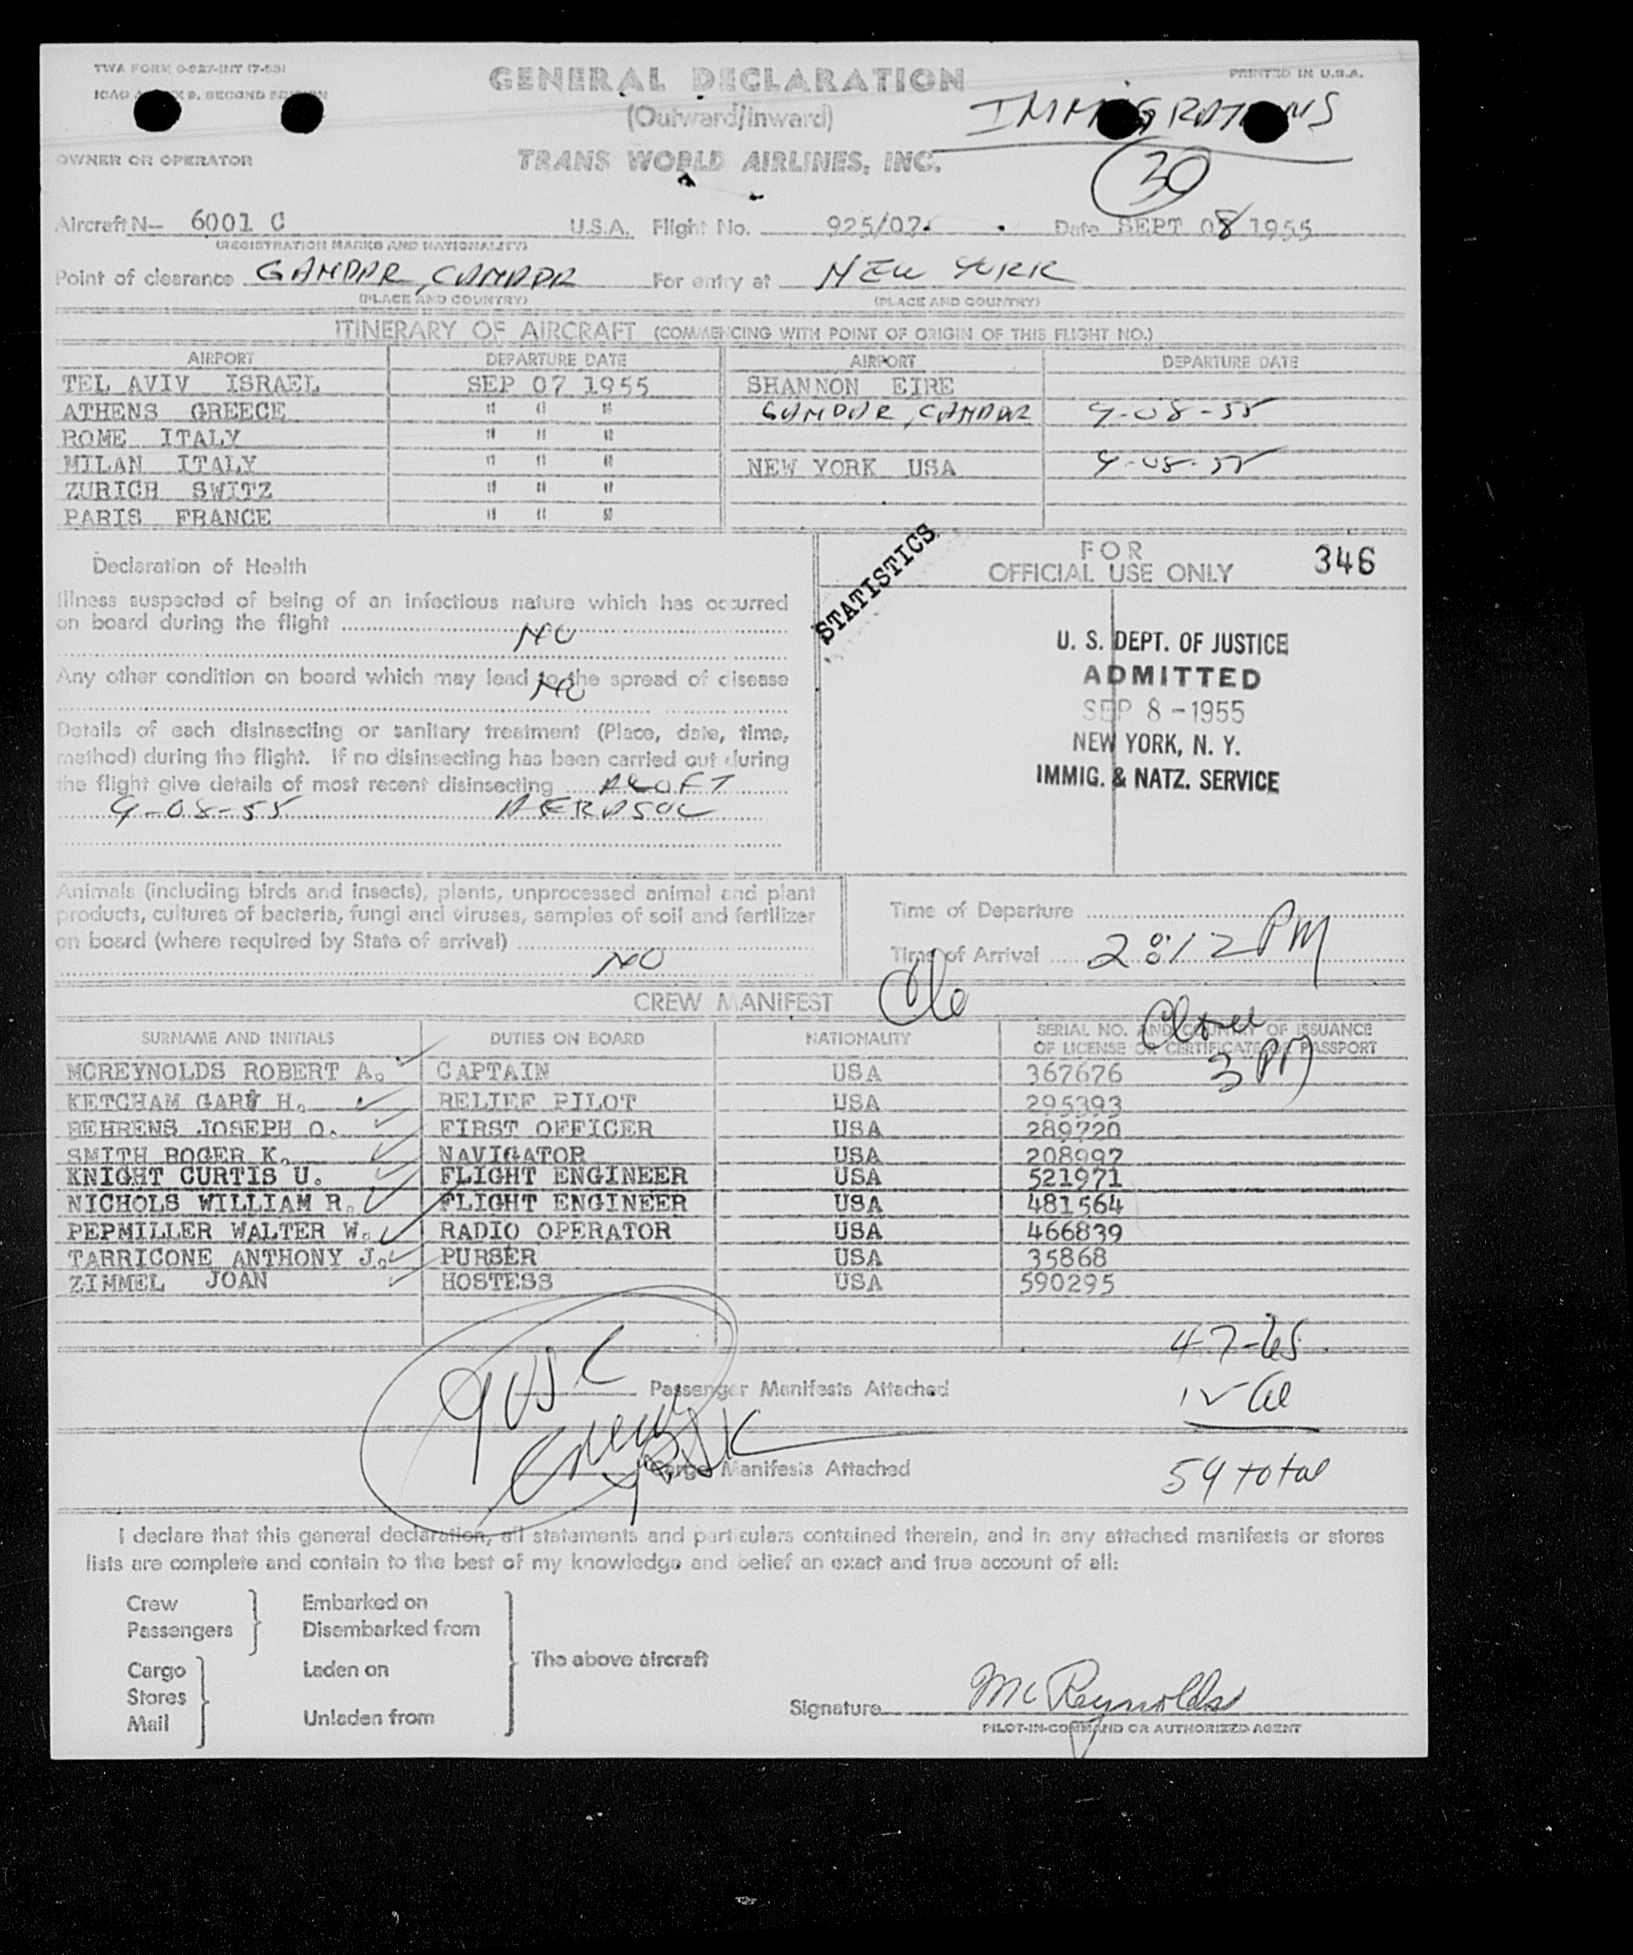 TWA FORM O-927-INT (7-55)
GENERAL DECLARATION
PRINTED IN U.S.A.
ICAO 9, SECOND
(Outward/Inward)
IMMIGRATIONS
OWNER OR OPERATOR
TRANS WORLD AIRLINES, INC.
30
Aircraft N- 6001 C U.S.A. Flight No. 925/07 Date SEPT 08 1955
(REGISTRATION MARKS AND NATIONALITY)
Point of clearance GANDAR, CANADA For entry at NEW YORK
(PLACE AND COUNTRY) (PLACE AND COUNTRY)
ITINERARY OF AIRCRAFT (COMMENCING WITH POINT OF ORIGIN OF THIS FLIGHT NO.)
AIRPORT DEPARTURE DATE AIRPORT DEPARTURE DATE
TEL AVIV ISRAEL SEP 07 1955 SHANNON EIRE
ATHENS GREECE " " " GANDAR, CANADA 9-08-55
ROME ITALY " " "
MILAN ITALY " " " NEW YORK USA 9-08-55
ZURICH SWITZ " " "
PARIS FRANCE " " "
STATISTICS
FOR
OFFICIAL USE ONLY 346
Declaration of Health
Illness suspected of being of an infectious nature which has occurred
on board during the flight
NO
Any other condition on board which may lead to the spread of disease
NO
Details of each disinsecting or sanitary treatment (Place, date, time,
method) during the flight. If no disinsecting has been carried out during
the flight give details of most recent disinsecting ALOFT
9-08-55 AEROSOL
U. S. DEPT. OF JUSTICE
ADMITTED
SEP 8 - 1955
NEW YORK, N. Y.
IMMIG. & NATZ. SERVICE
Animals (including birds and insects), plants, unprocessed animal and plant
products, cultures of bacteria, fungi and viruses, samples of soil and fertilizer
on board (where required by State of arrival)
NO
Time of Departure
Time of Arrival 2:12 PM
CREW MANIFEST
SURNAME AND INITIALS DUTIES ON BOARD NATIONALITY SERIAL NO. AND COUNTRY OF ISSUANCE
OF LICENSE OR CERTIFICATE OR PASSPORT
3 PM
MCREYNOLDS ROBERT A. CAPTAIN USA 367676
KETCHAM GARY H. RELIEF PILOT USA 295393
BEHRENS JOSEPH O. FIRST OFFICER USA 289720
SMITH ROGER K. NAVIGATOR USA 208997
KNIGHT CURTIS U. FLIGHT ENGINEER USA 521971
NICHOLS WILLIAM R. FLIGHT ENGINEER USA 481564
PEPMILLER WALTER W. RADIO OPERATOR USA 466839
TARRICONE ANTHONY J. PURSER USA 35868
ZIMMEL JOAN HOSTESS USA 590295
9 USC
Passenger Manifests Attached
Cargo Manifests Attached
59 total
I declare that this general declaration, all statements and particulars contained therein, and in any attached manifests or stores
lists are complete and contain to the best of my knowledge and belief an exact and true account of all:
Crew Embarked on
Passengers Disembarked from
The above aircraft
Cargo Laden on
Stores
Mail Unladen from
Signature McReynolds
PILOT-IN-COMMAND OR AUTHORIZED AGENT